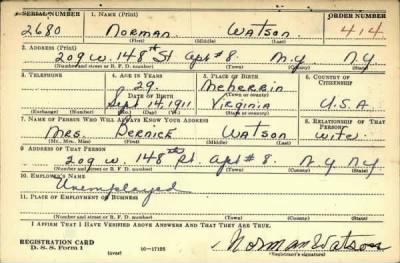 SERIAL NUMBER 1. NAME (Print) ORDER NUMBER
2680 Norman Watson 414
(First) (Middle) (Last)
2. ADDRESS (Print)
209 W. 148th St Apt # 8 N.Y N.Y
(Number and street or R. F. D. number) (Town) (County) (State)
3. TELEPHONE 4. AGE IN YEARS 5. PLACE OF BIRTH 6. COUNTRY OF CITIZENSHIP
29 Meherrin
DATE OF BIRTH (Town or county)
Sept 14, 1911 Virginia U.S.A
(Exchange) (Number) (Mo.) (Day) (Yr.) (State or country)
7. NAME OF PERSON WHO WILL ALWAYS KNOW YOUR ADDRESS 8. RELATIONSHIP OF THAT PERSON
Mrs. Bernice Watson Wife
(Mr., Mrs., Miss) (First) (Middle) (Last)
9. ADDRESS OF THAT PERSON
209 W. 148th St. Apt # 8. N.Y N.Y
(Number and street or R. F. D. number) (Town) (County) (State)
10. EMPLOYER'S NAME
Unemployed
11. PLACE OF EMPLOYMENT OR BUSINESS
(Number and street or R. F. D. number) (Town) (County) (State)
I AFFIRM THAT I HAVE VERIFIED ABOVE ANSWERS AND THAT THEY ARE TRUE.
REGISTRATION CARD
D. S. S. Form 1 (over) 16—17105 Norman Watson
(Registrant's signature)